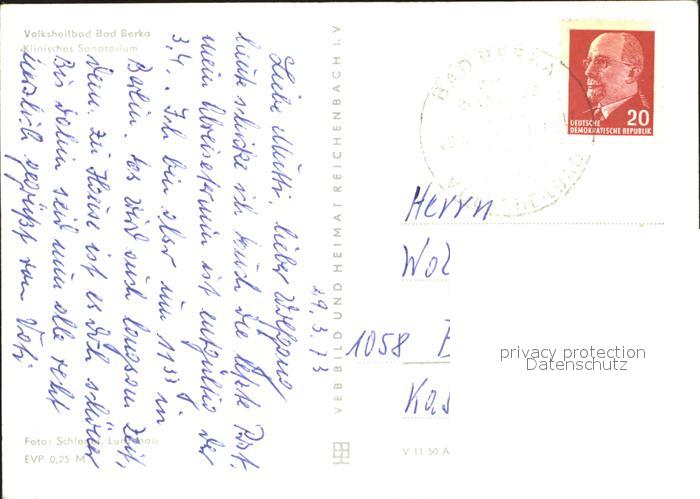 Volksheilbad Bad Berka
Klinisches Sanatorium
29.3.73
Liebe Mutti, lieber Wolfgang
heute schicke ich Euch die letzte Post.
mein Abreisetermin ist endgültig der
3.4.. Ich bin aber um 11³³ in
Berlin. Es wird auch langsam Zeit,
denn zu Hause ist es doch schöner
Bis dahin seid nun alle recht
herzlich gegrüßt von Vati
Foto: Schlegel,
EVP 0,25 M
VEB BILD UND HEIMAT REICHENBACH I. V
V 11 50 A
BAD BERKA
DEUTSCHE
DEMOKRATISCHE REPUBLIK
20
Herrn
Wol
1058 B
Kas
privacy protection
Datenschutz